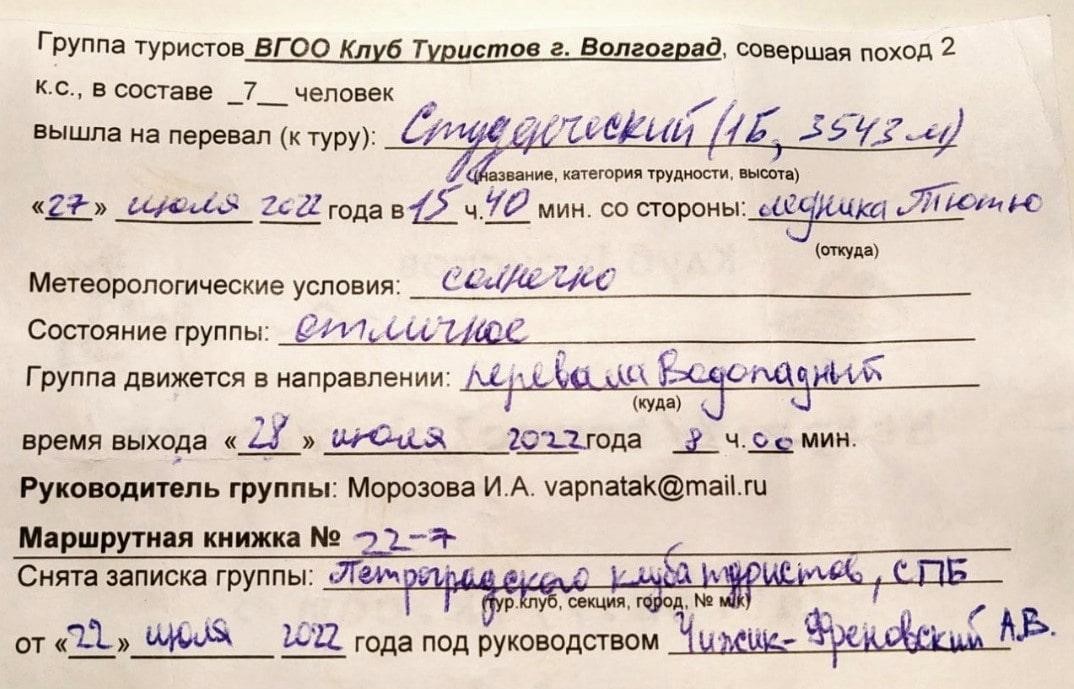 Группа туристов ВГОО Клуб Туристов г. Волгоград, совершая поход 2
к.с., в составе _7__ человек
вышла на перевал (к туру): Студенческий (1Б, 3543 м)
(название, категория трудности, высота)
«27» июля 2022 года в 15 ч. 40 мин. со стороны: ледника Тютю
(откуда)
Метеорологические условия: солнечно
Состояние группы: отличное
Группа движется в направлении: перевала Водопадный
(куда)
время выхода «28» июля 2022 года 8 ч. 00 мин.
Руководитель группы: Морозова И.А. vapnatak@mail.ru
Маршрутная книжка № 22-7
Снята записка группы: Петроградского клуба туристов, СПБ
(тур.клуб, секция, город, № м/к)
от «22» июля 2022 года под руководством Чижик-Френовский А.В.